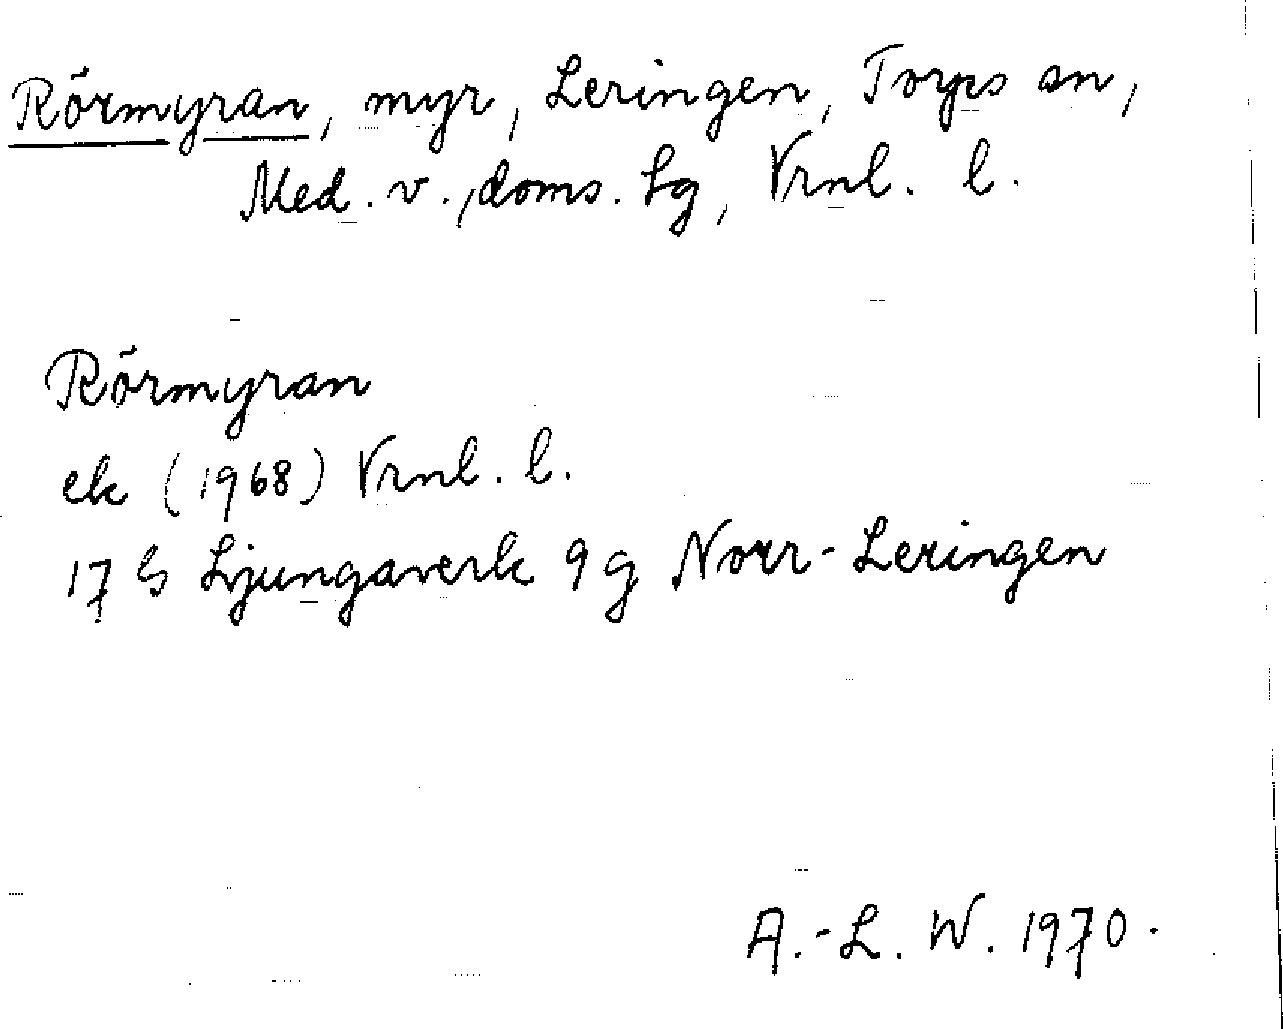 Rörmyran, myr, Leringen, Torps sn,
Med. v., doms. hg, Vrnl. l.
Rörmyran
ek (1968) Vrnl. l.
17 G Ljungaverk 9 g Norr-Leringen
A.-L. W. 1970.